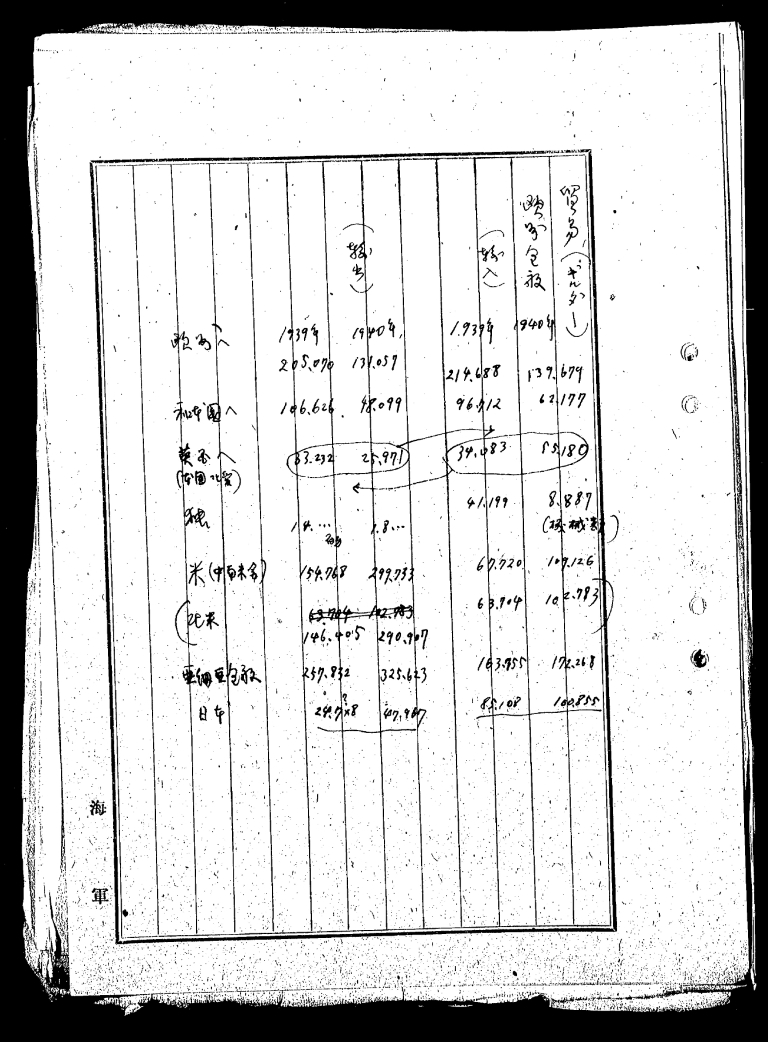 貿易(ギルダー)
欧州全般
(輸入)
(輸出)
1939年 1940年 1.939年 1940年
欧州へ 205.070 131.057 214.688 139.679
和本国へ 106.626 48.099 96.712 62.177
英国へ 63.232 25.971 34.083 55.180
独 1.4.… 1.8… 41.199 8.887
米(中南米含) 154.768 299.733 67.720 109.126
(北米 63.704 102.783 63.704 102.783)
146.405 290.907
亜細亜全般 257.832 325.623 163.955 172.268
日本 47.967 85.108 100.855
海軍